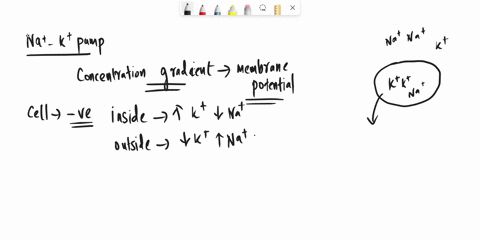 Na⁺ - K⁺ pump
Concentration gradient → membrane
potential
Cell → -ve inside → ↑ K⁺ ↓ Na⁺
outside → ↓ K⁺ ↑ Na⁺.
Na⁺ Na⁺ K⁺
K⁺ K⁺
Na⁺